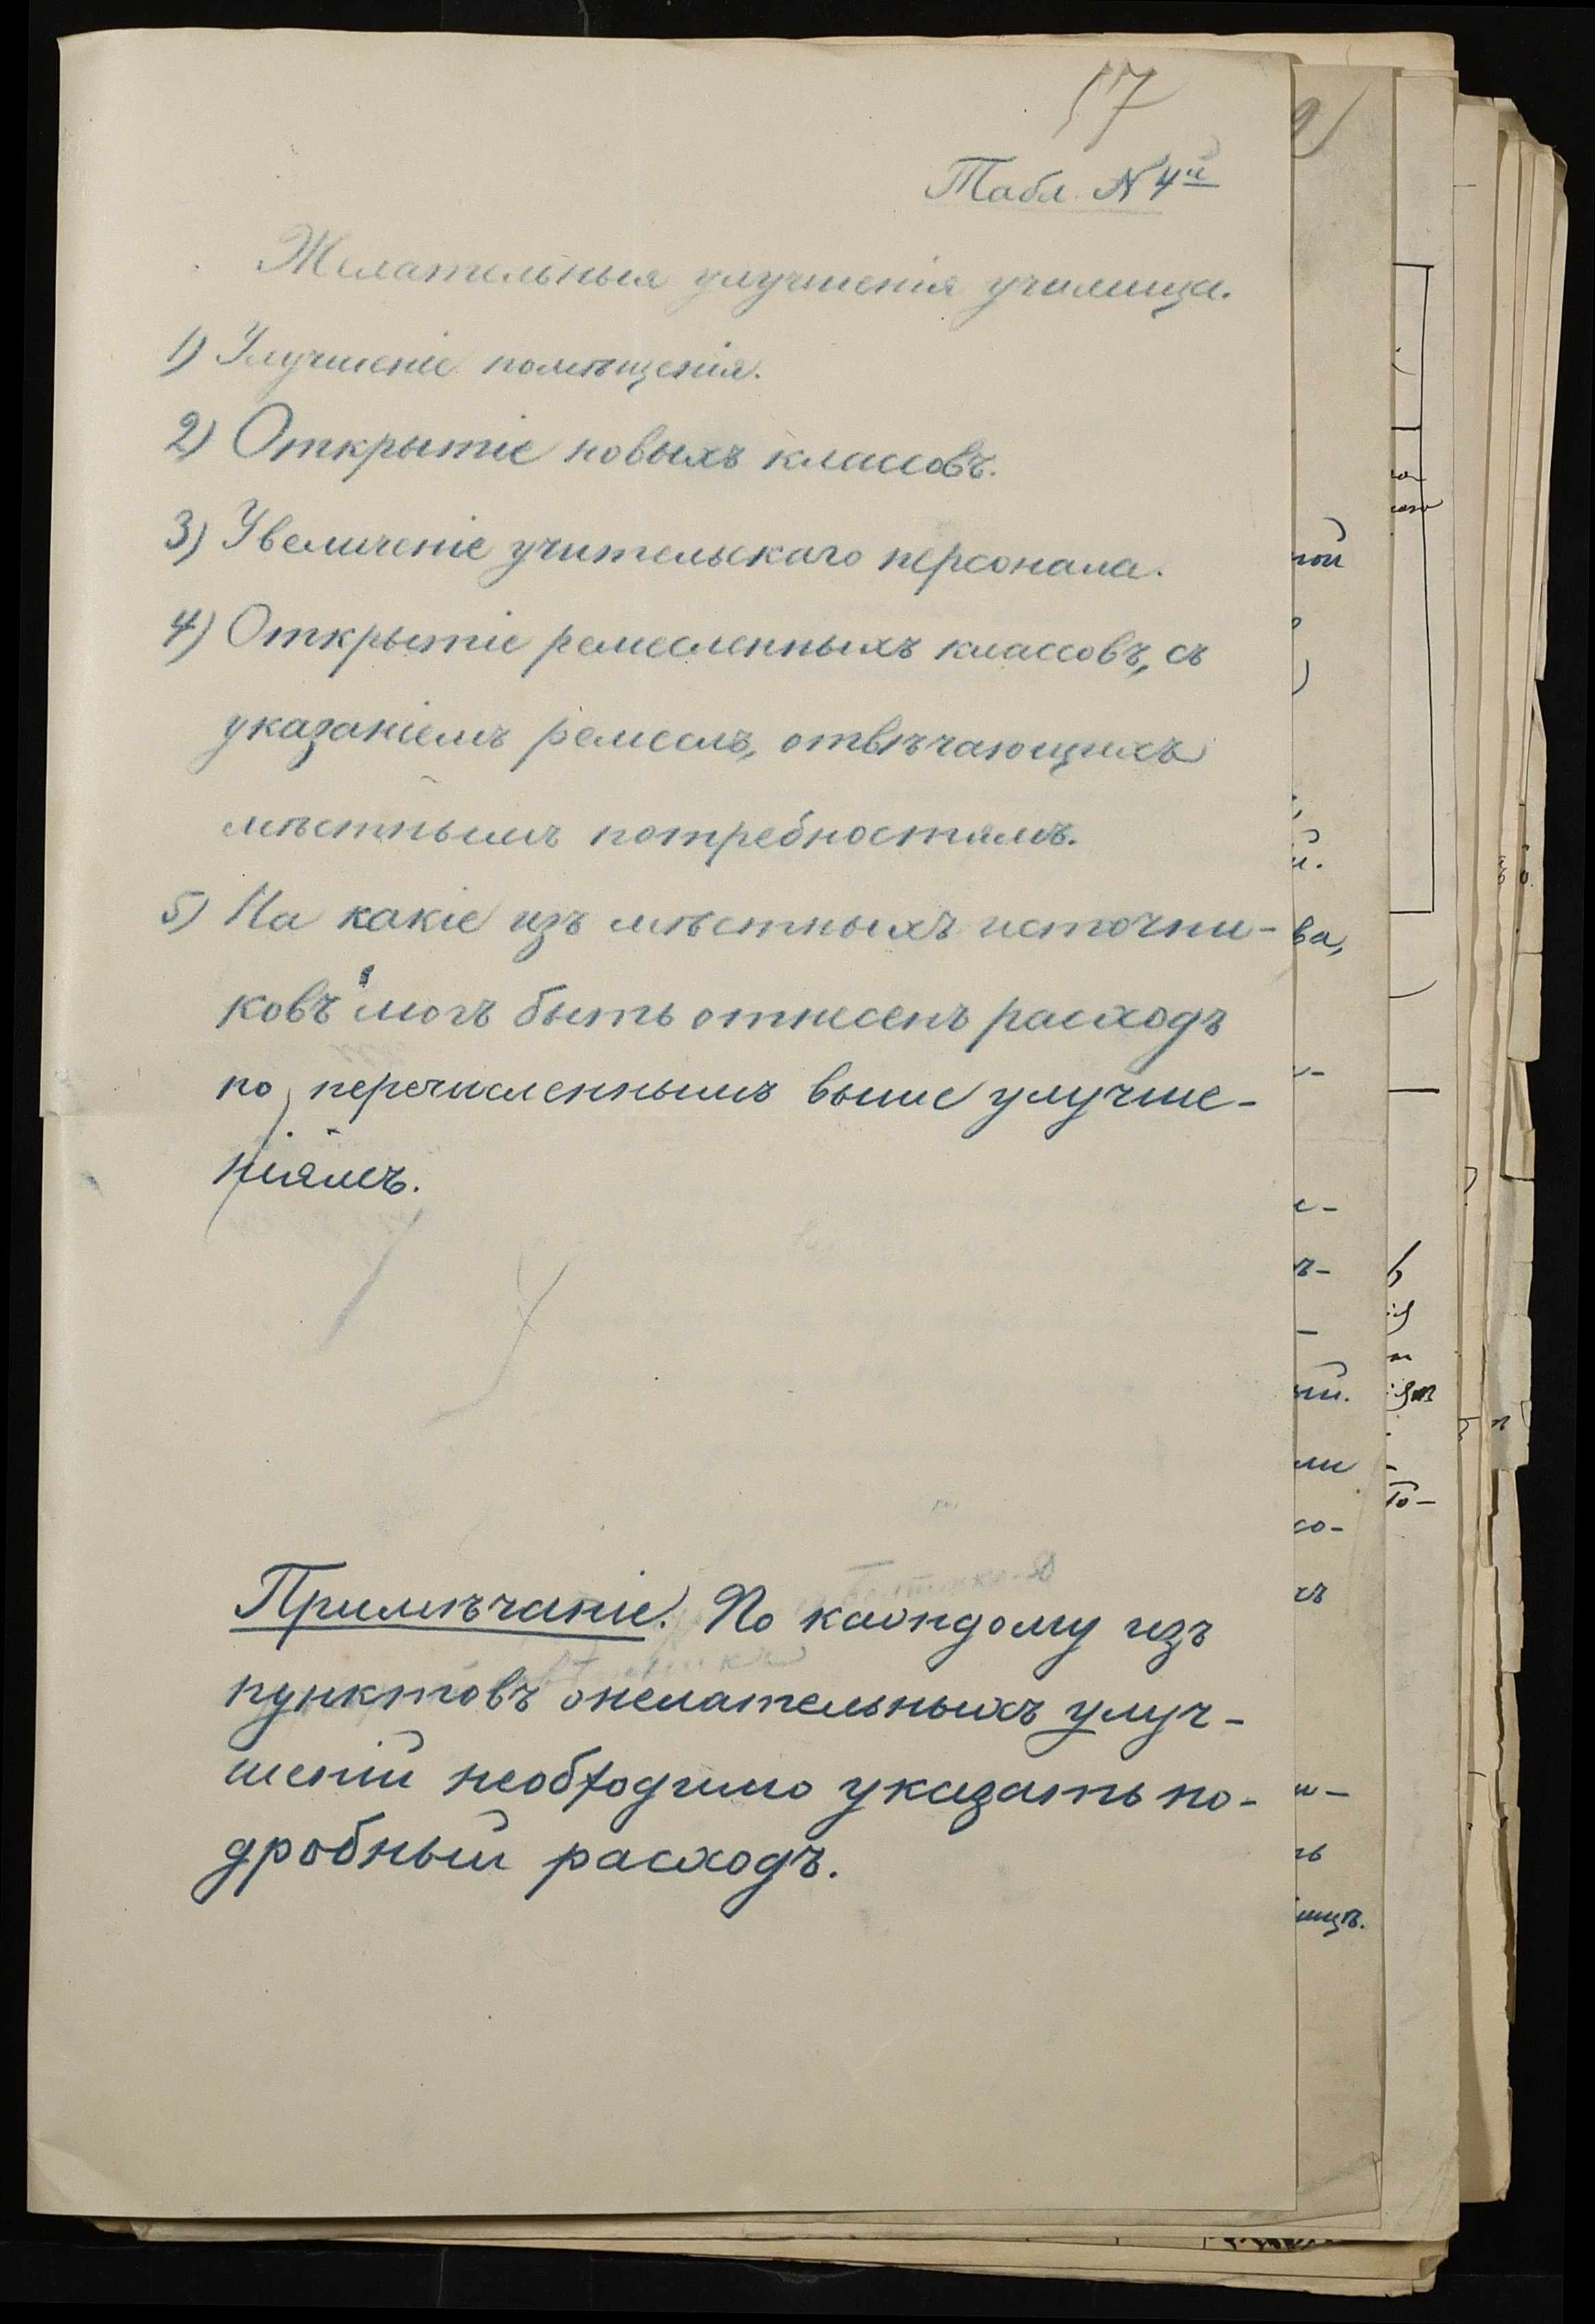 57
Табл. № 4й
Желательныя улучшенія училища.
1) Улучшеніе помѣщенія.
2) Открытіе новыхъ классовъ.
3) Увеличеніе учительскаго персонала.
4) Открытіе ремесленныхъ классовъ, съ
указаніемъ ремеслъ, отвѣчающихъ
мѣстнымъ потребностямъ.
5) На какіе изъ мѣстныхъ источни-
ковъ могъ быть отнесенъ расходъ
по перечисленнымъ выше улучше-
ніямъ.
Примѣчаніе. По каждому изъ
пунктовъ желательныхъ улуч-
шеній необходимо указать по-
дробный расходъ.